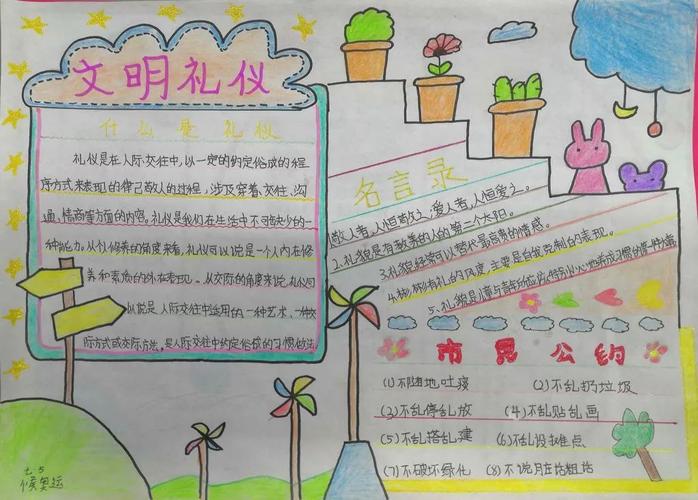 文明礼仪
什么是礼仪
礼仪是在人际交往中,以一定的约定俗成的程
序方式来表现的律己敬人的过程,涉及穿着、交往、沟
通、情商等方面的内容。礼仪是我们在生活中不可缺少的一
种能力。从个修养的角度来看,礼仪可以说是一个人内在修
养和素质的外在表现。从交际的角度来说,礼仪可
以说是人际交往中适用的一种艺术、一种交
际方式或交际方法,是人际交往中约定俗成的习惯做法
七.5
名言录
1.敬人者,人恒敬之;爱人者,人恒爱之。
2.礼貌是有教养的人的第二个太阳。
3.礼貌经常可以替代最高贵的情感。
4.彬彬有礼的风度,主要是自我克制的表现。
5.礼貌是儿童与青年所应该特别小心地养成习惯的第一件大事
市民公约
(1)不随地吐痰
(2)不乱扔垃圾
(3)不乱停乱放
(4)不乱贴乱画
(5)不乱搭乱建
(6)不乱设摊点
(7)不破坏绿化
(8)不说脏话粗话